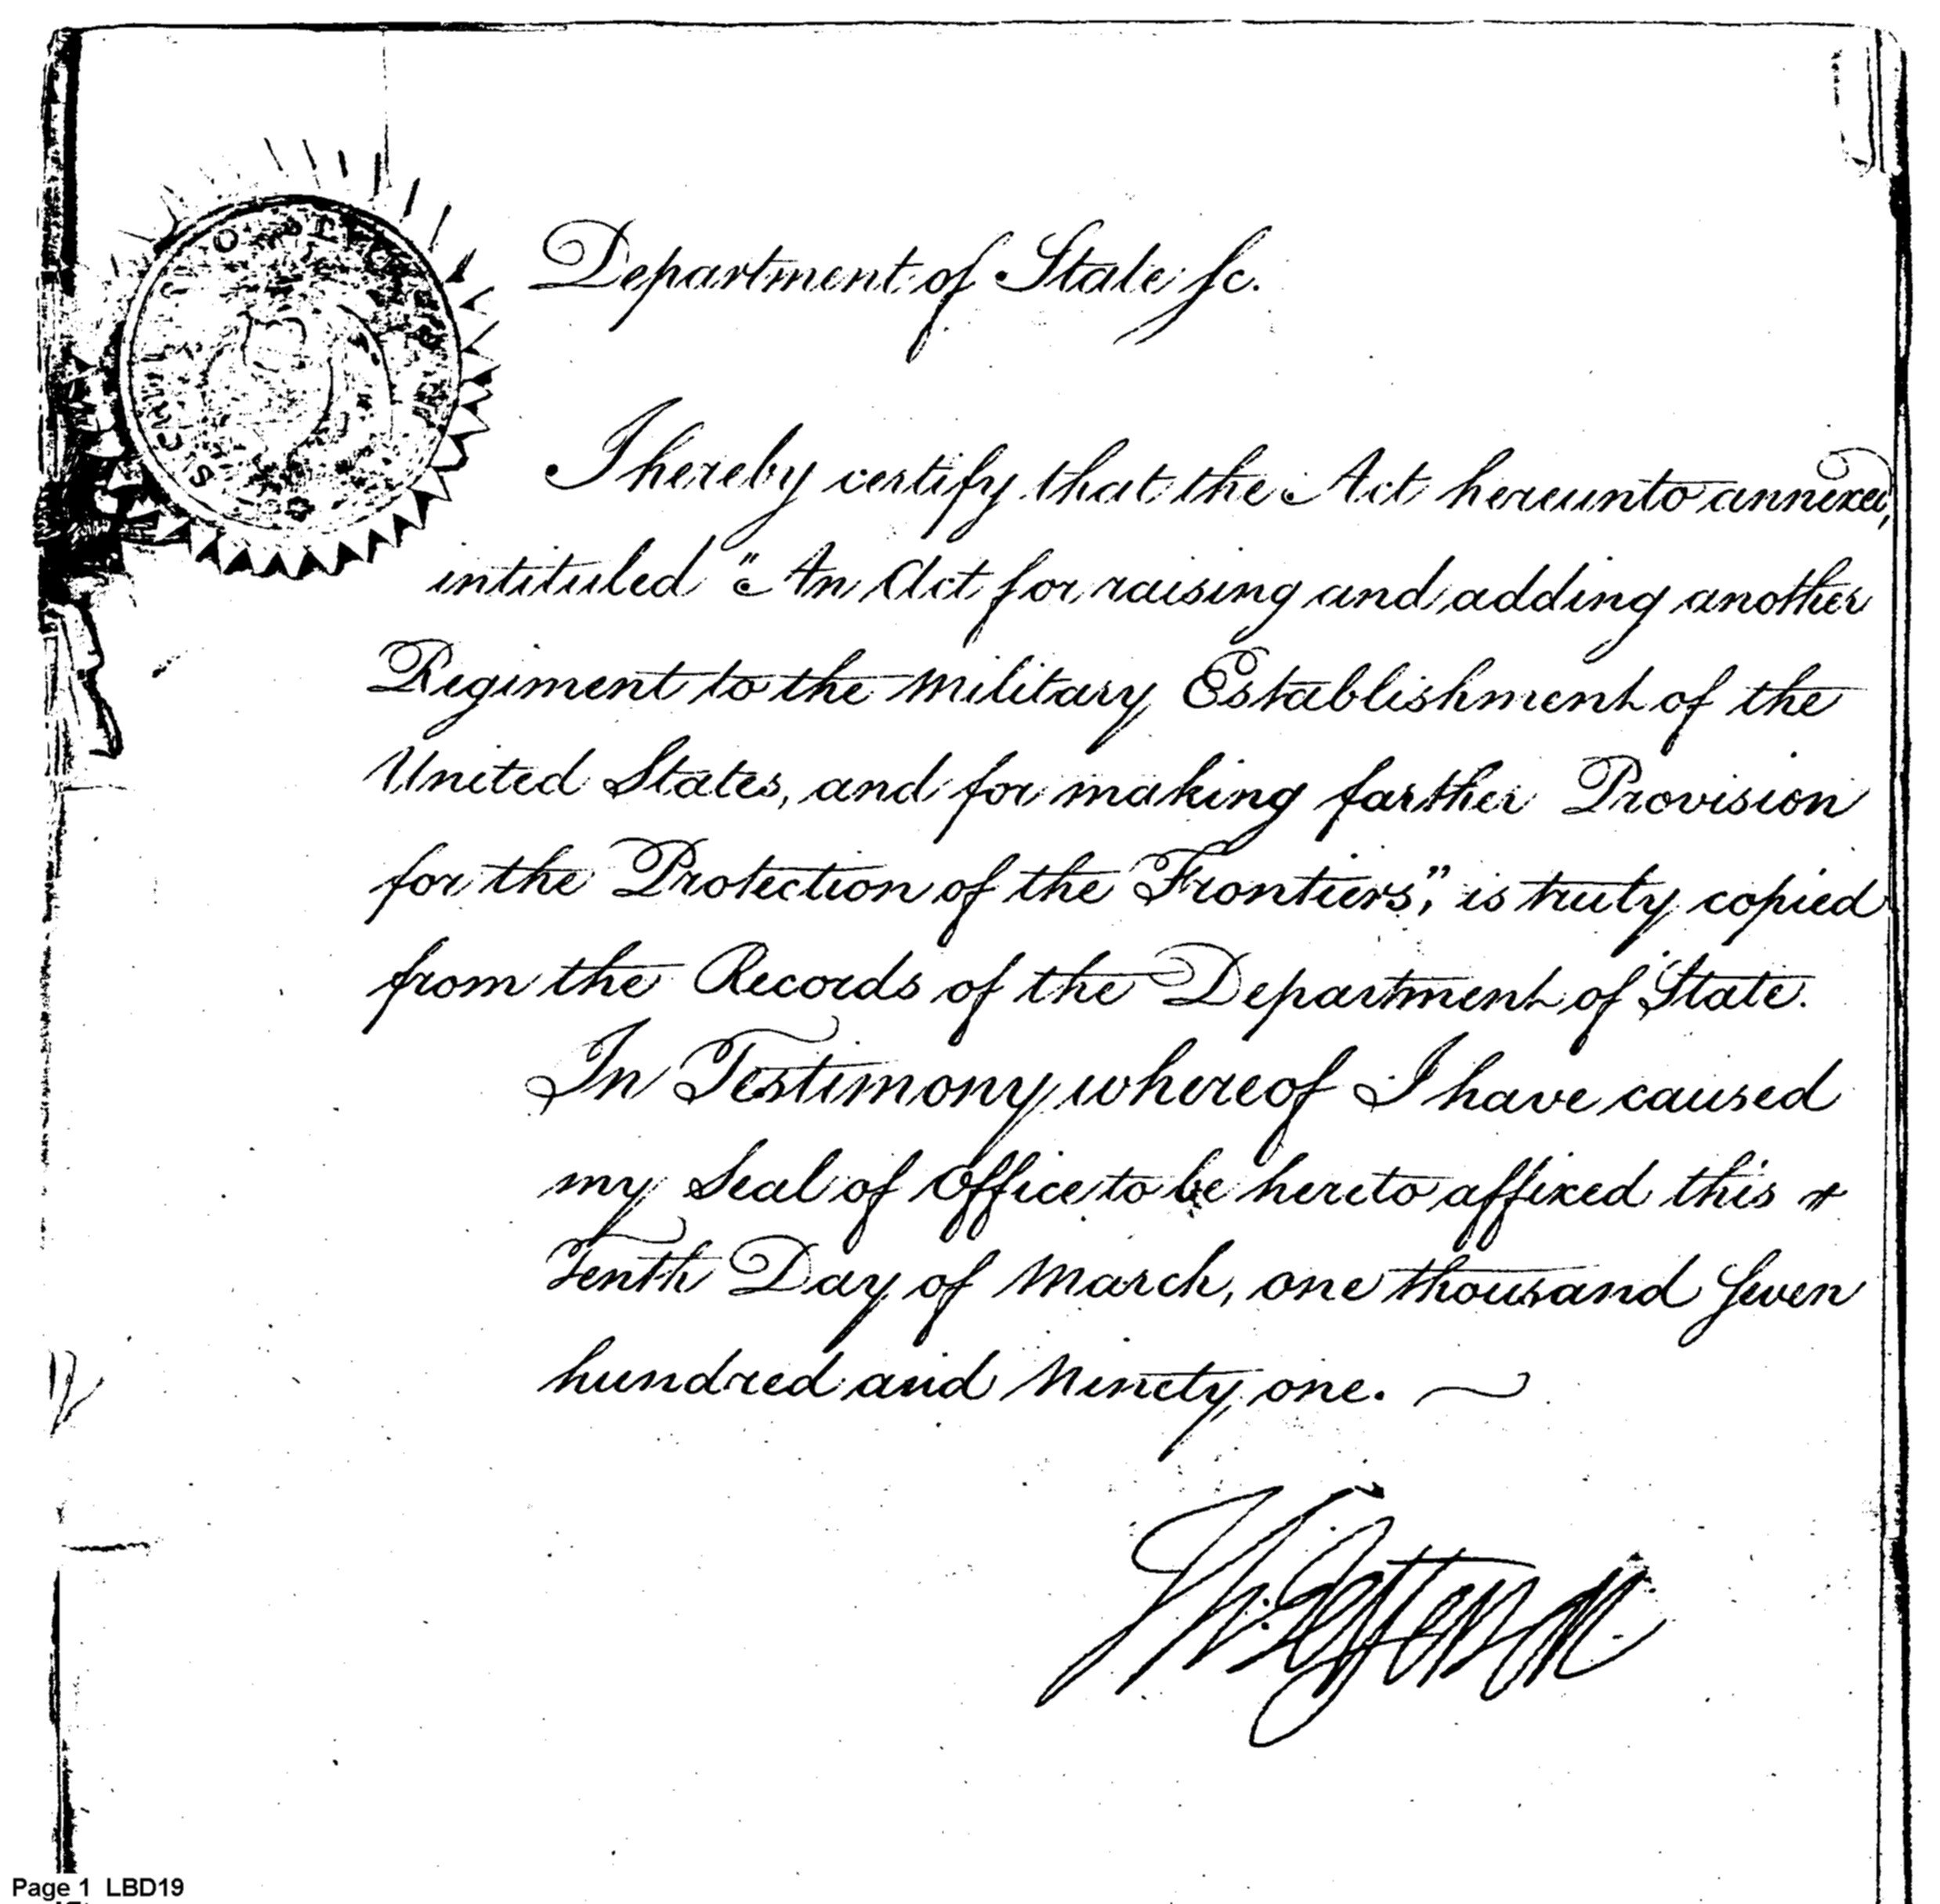 Department of State sc.
I hereby certify that the Act hereunto annexed,
intituled "An Act for raising and adding another
Regiment to the military Establishment of the
United States, and for making farther Provision
for the Protection of the Frontiers", is truly copied
from the Records of the Department of State.
In Testimony whereof I have caused
my Seal of Office to be hereto affixed this
Tenth Day of March, one thousand seven
hundred and ninety one.
Th: Jefferson
Page 1 LBD19